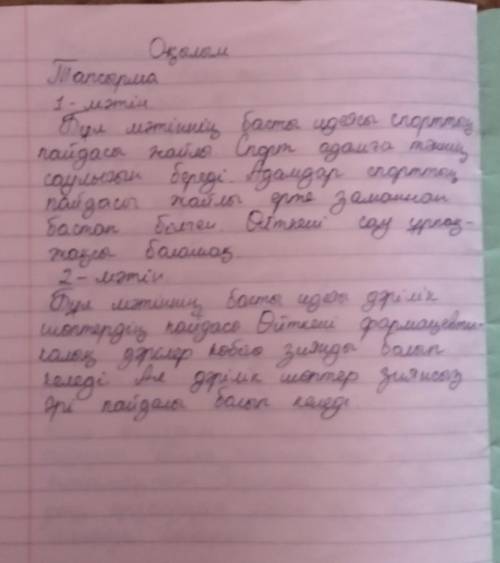 Оқылым
Тапсырма
1 - мәтін
Бұл мәтіннің басты идеясы спорттың
пайдасы жайлы Спорт адамға тәннің
саулығын береді. Адамдар спорттың
пайдасы жайлы ерте заманнан
бастап білген. Өйткені сау ұрпақ-
жақсы болашақ.
2 - мәтін
Бұл мәтіннің басты идея дәрілік
шөптердің пайдасы Өйткені фармацевти-
калық дәрілер көбісі зиянды болып
келеді Ал дәрілік шөптер зиянсыз
әрі пайдалы болып келеді